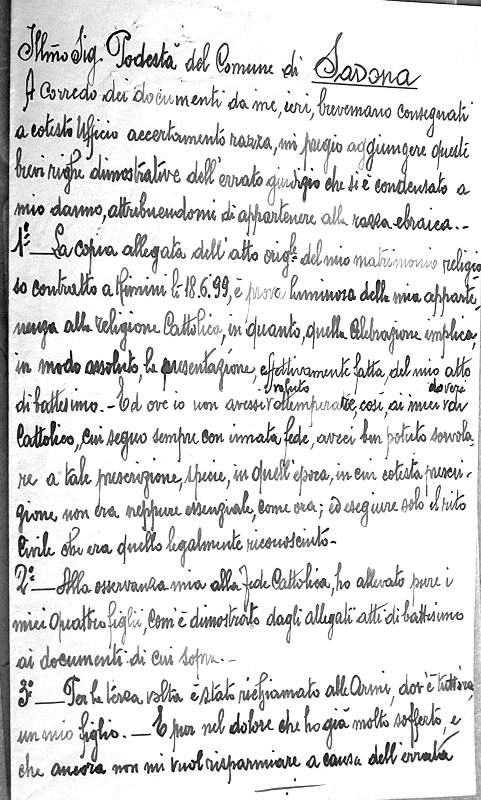 Illmo Sig. Podestà del Comune di Savona
A corredo dei documenti da me, ieri, brevemano consegnati
a cotesto Ufficio accertamento razza, mi pregio aggiungere queste
brevi righe dimostrative dell'errato giudizio che si è condensato a
mio danno, attribuendomi di appartenere alla razza ebraica. -
1º - La copia allegata dell'atto origle del mio matrimonio religio
so contratto a Rimini li 18.6.99, è prova luminosa della mia apparte
nenza alla religione Cattolica, in quanto, quella celebrazione implica,
in modo assoluto, la presentazione, effettivamente fatta, del mio atto
di battesimo. - Ed ove io non avessi voluto ottemperare, così, ai miei doveri di
Cattolico, cui seguo sempre con innata fede, avrei ben potuto sorvola
re a tale prescrizione, specie, in quell'epoca, in cui cotesta prescri-
zione non era neppure essenziale, come ora; ed eseguire solo il rito
Civile che era quello legalmente riconosciuto. -
2º - Alla osservanza mia alla Fede Cattolica, ho allevato pure i
miei quattro figli, com'è dimostrato dagli allegati atti di battesimo
ai documenti di cui sopra. -
3º - Per la terza volta è stato richiamato alle Armi, dov'è tuttora,
un mio figlio. - E pur nel dolore che ho già molto sofferto, e
che ancora non mi vuol risparmiare a causa dell'errata